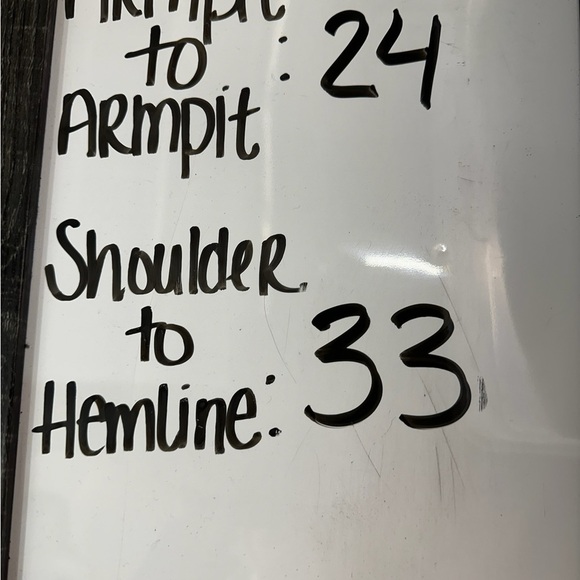 Armpit
to : 24
ARmpit
ShouldeR
to
Hemline: 33